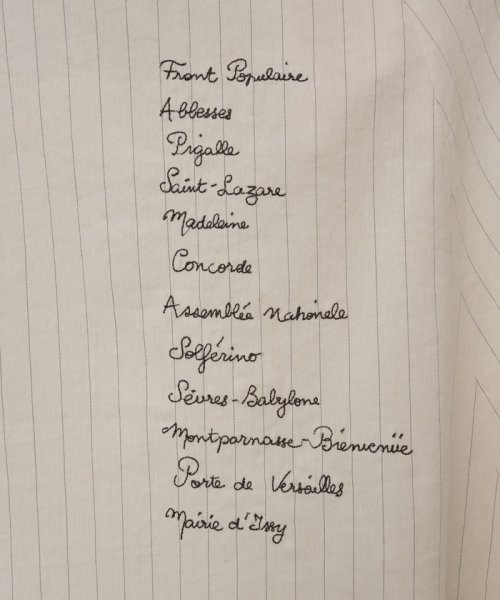 Front Populaire
Abbesses
Pigalle
Saint-Lazare
Madeleine
Concorde
Assemblée Nationale
Solférino
Sèvres-Babylone
Montparnasse-Bienvenüe
Porte de Versailles
Mairie d'Issy